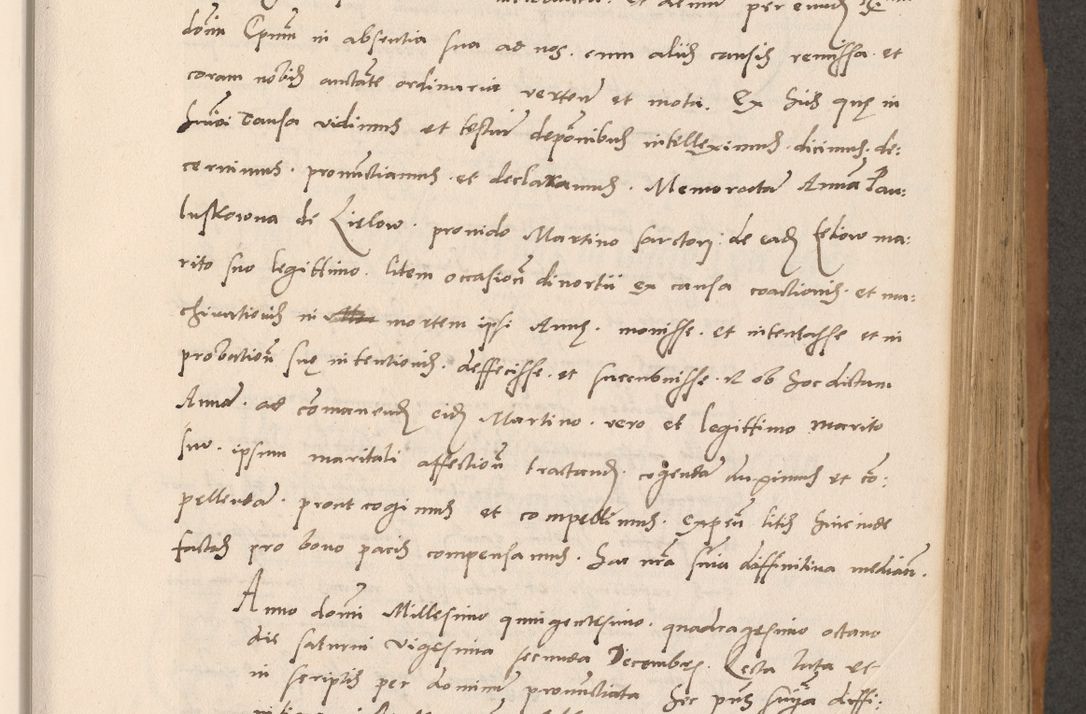 domini Cpnum in absentia sua ad nos. cum aliis causis remissa. et
coram nobis auctate ordinaria verten et mota. Ex his quę in
huiusmodi causa vidimus et testium deponibus intelleximus. dicimus. de:
cernimus. pronuntiamus et declaramus. Memoratam Annam Pau:
luskowna de Lislow. provido Martino sartori de eadem ma:
rito suo legittimo. litem occasione divortii ex causa coactionis. et ma:
chinationis in mortem ipsi Annę. movisse. et intentasse et in
probatione suę intentionis. deffecisse. et sucubuisse. et ob hoc dictam
Annam. ad comanendum eidem Martino. vero et legittimo marito
suo. ipsum maritali affectione tractandum. cogendam duximus et com:
pellendam. prout cogimus et compellimus. expensis litis hincinde
factas pro bono pacis compensamus. hac nra snia diffinitiva mediante.
Anno domini Millesimo quingentesimo. quadragesimo octavo
die saturni vigesima secunda Decembris. Lecta lata et
in scriptis per dominum pronuntiata hec pns snia diffi: